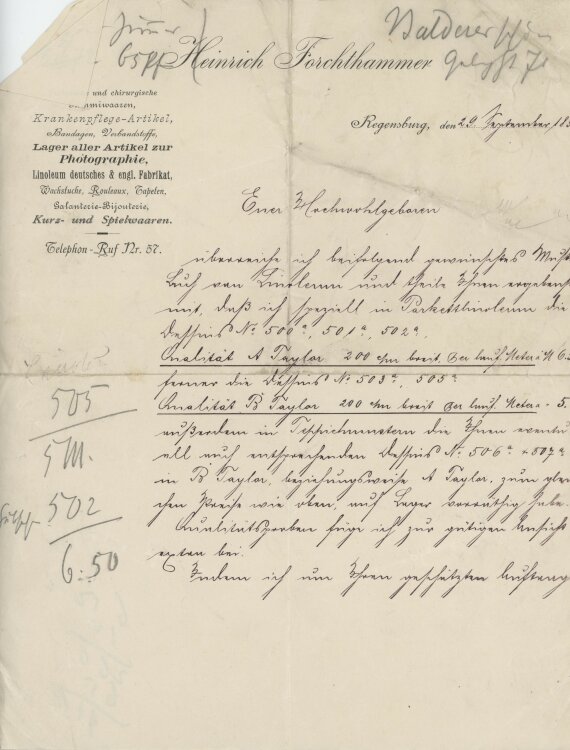 Zimmer
Heinrich Forchthammer
und chirurgische
Gummiwaaren,
Krankenpflege-Artikel,
Bandagen, Verbandstoffe,
Lager aller Artikel zur
Photographie,
Linoleum deutsches & engl. Fabrikat,
Wachstuche, Rouleaux, Tapeten,
Galanterie-Bijouterie,
Kurz- und Spielwaaren.
Telephon-Ruf Nr. 57.
Regensburg, den 29 September 18
Euer Hochwohlgeboren
überreiche ich beifolgend gewünschtes Must
buch von Linoleum und theile Ihnen ergebens
mit, daß ich speziell in Parkettlinoleum die
Dessins No 500a, 501a, 502a,
Qualität A Taylor 200 c/m breit per lauf. Meter M 6.
ferner die Dessins No 503a, 505a
Qualität B Taylor 200 c/m breit per lauf. Meter 5.
außerdem in Teppichmustern die Ihnen eventu
ell auch entsprechenden Dessins No 506a + 507a
in B Taylor, beziehungsweise A Taylor, zum glei
chen Preise wie oben, auf Lager vorräthig habe.
Qualitätsproben füge ich zur gütigen Ansicht
extra bei.
Indem ich um Ihren geschätzten Auftrag
505
5 M.
502
6.50